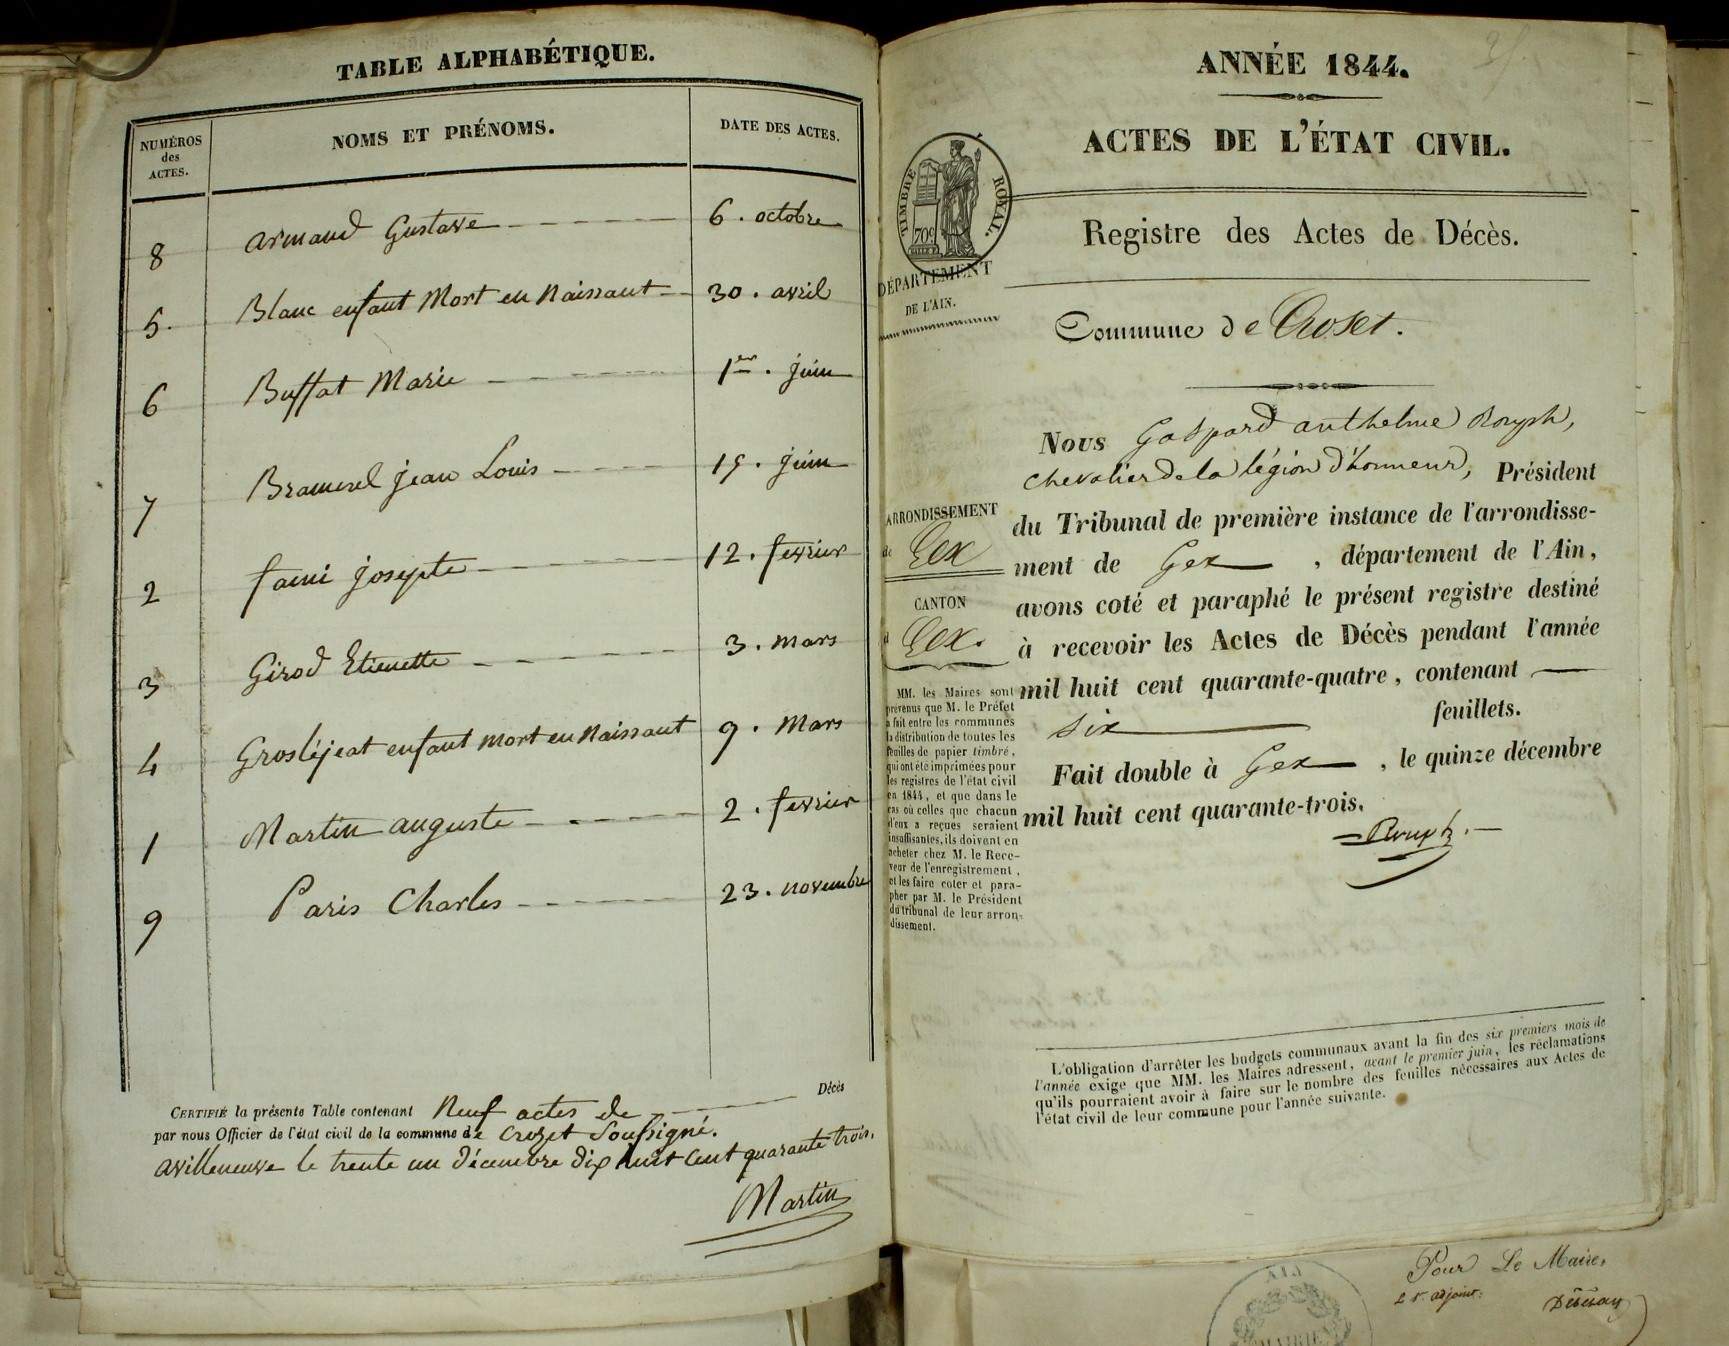 TABLE ALPHABÉTIQUE.
NUMÉROS des ACTES.
NOMS ET PRÉNOMS.
DATE DES ACTES.
8 armand Gustave 6. octobre
5. Blanc enfant Mort en Naissant 30. avril
6 Buffat Marie 1er. juin
7 Bramerel jean Louis 15. juin
2 fami josepte 12. fevrier
3 Girod Etienette 3. mars
4 Grosléjeat enfant mort en Naissant 9. Mars
1 Martin auguste 2. fevrier
9 Paris Charles 23. novembre
CERTIFIÉ la présente Table contenant Neuf actes de Décès
par nous Officier de l'état civil de la commune de Crozet Soussigné.
avilleneuve le trente un décembre dix huit cent quarante trois.
Martin
ANNÉE 1844.
ACTES DE L'ÉTAT CIVIL.
TIMBRE ROYAL.
70c
DÉPARTEMENT
DE L'AIN.
Registre des Actes de Décès.
Commune de Croset.
ARRONDISSEMENT
de Gex
CANTON
d Gex.
MM. les Maires sont
prévenus que M. le Préfet
a fait entre les communes
la distribution de toutes les
feuilles de papier timbré,
qui ont été imprimées pour
les registres de l'état civil
en 1844, et que dans le
cas où celles que chacun
d'eux a reçues seraient
insuffisantes, ils doivent en
acheter chez M. le Rece-
veur de l'enregistrement,
et les faire coter et para-
pher par M. le Président
du tribunal de leur arron-
dissement.
Nous Gaspard anthelme Rouph,
chevalier de la légion d'honneur, Président
du Tribunal de première instance de l'arrondisse-
ment de Gex, département de l'Ain,
avons coté et paraphé le présent registre destiné
à recevoir les Actes de Décès pendant l'année
mil huit cent quarante-quatre, contenant
six feuillets.
Fait double à Gex, le quinze décembre
mil huit cent quarante-trois.
Rouph.
L'obligation d'arrêter les budgets communaux avant la fin des six premiers mois de
l'année exige que MM. les Maires adressent, avant le premier juin, les réclamations
qu'ils pourraient avoir à faire sur le nombre des feuilles nécessaires aux Actes de
l'état civil de leur commune pour l'année suivante.
Pour Le Maire,
adjoint.
AIN
MAIRIE